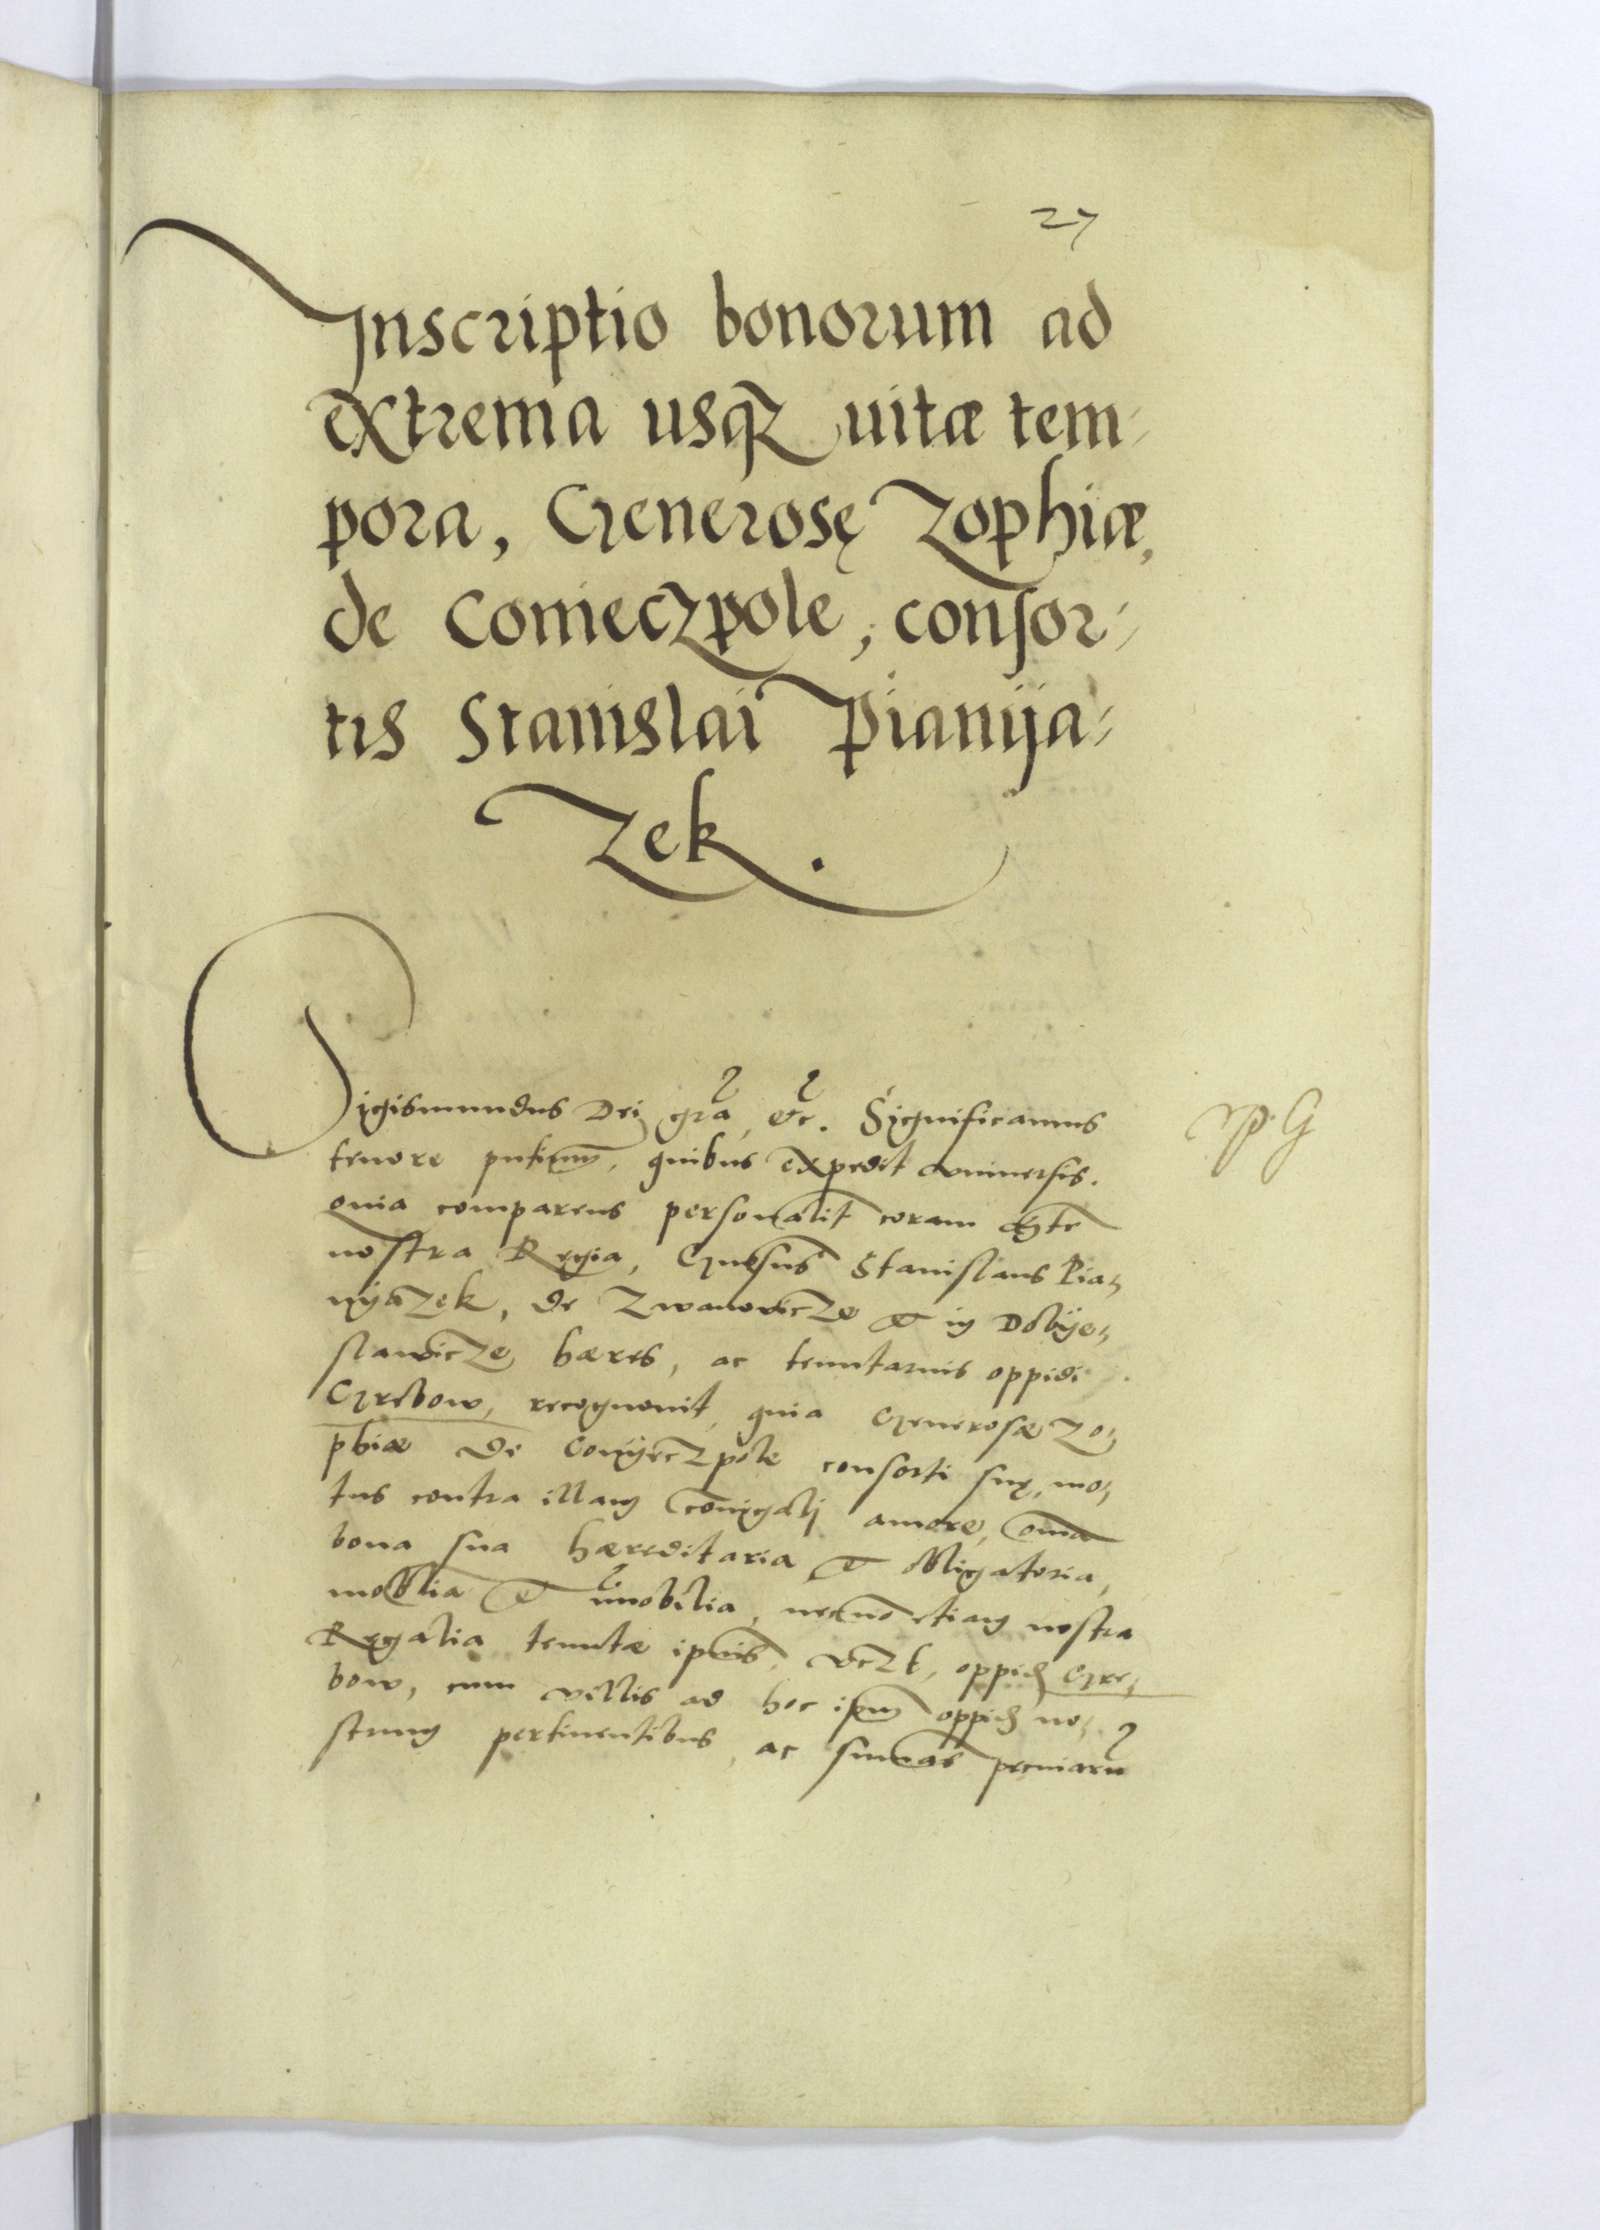 27
Inscriptio bonorum ad
extrema usq uitæ tem-
pora, Generosę Zophiæ,
de Conieczpole, consor-
tis Stanislai Pianija-
zek.
Sigismundus Dei gra, etc. Significamus
tenore pntium, quibus expedit vniuersis.
Quia comparens personalit coram Mte
nostra Regia, Gnrsus Stanislaus Pia-
nijazek, de Zwanowicze et in Dobije-
slawicze hæres, ac tenutarius oppidi
Grebow, recognouit, quia Generosæ Zo-
phiæ de Conijeczpole consorti suę, mo-
tus contra illam coniugali amore, omia
bona sua hæreditaria et obligatoria,
mobilia et imobilia, necno etiam nostra
Regalia tenutæ ipius, vczt, oppid Gre-
bow, cum villis ad hoc ipm oppid no-
strum pertinentibus, ac sumas pecuniaru